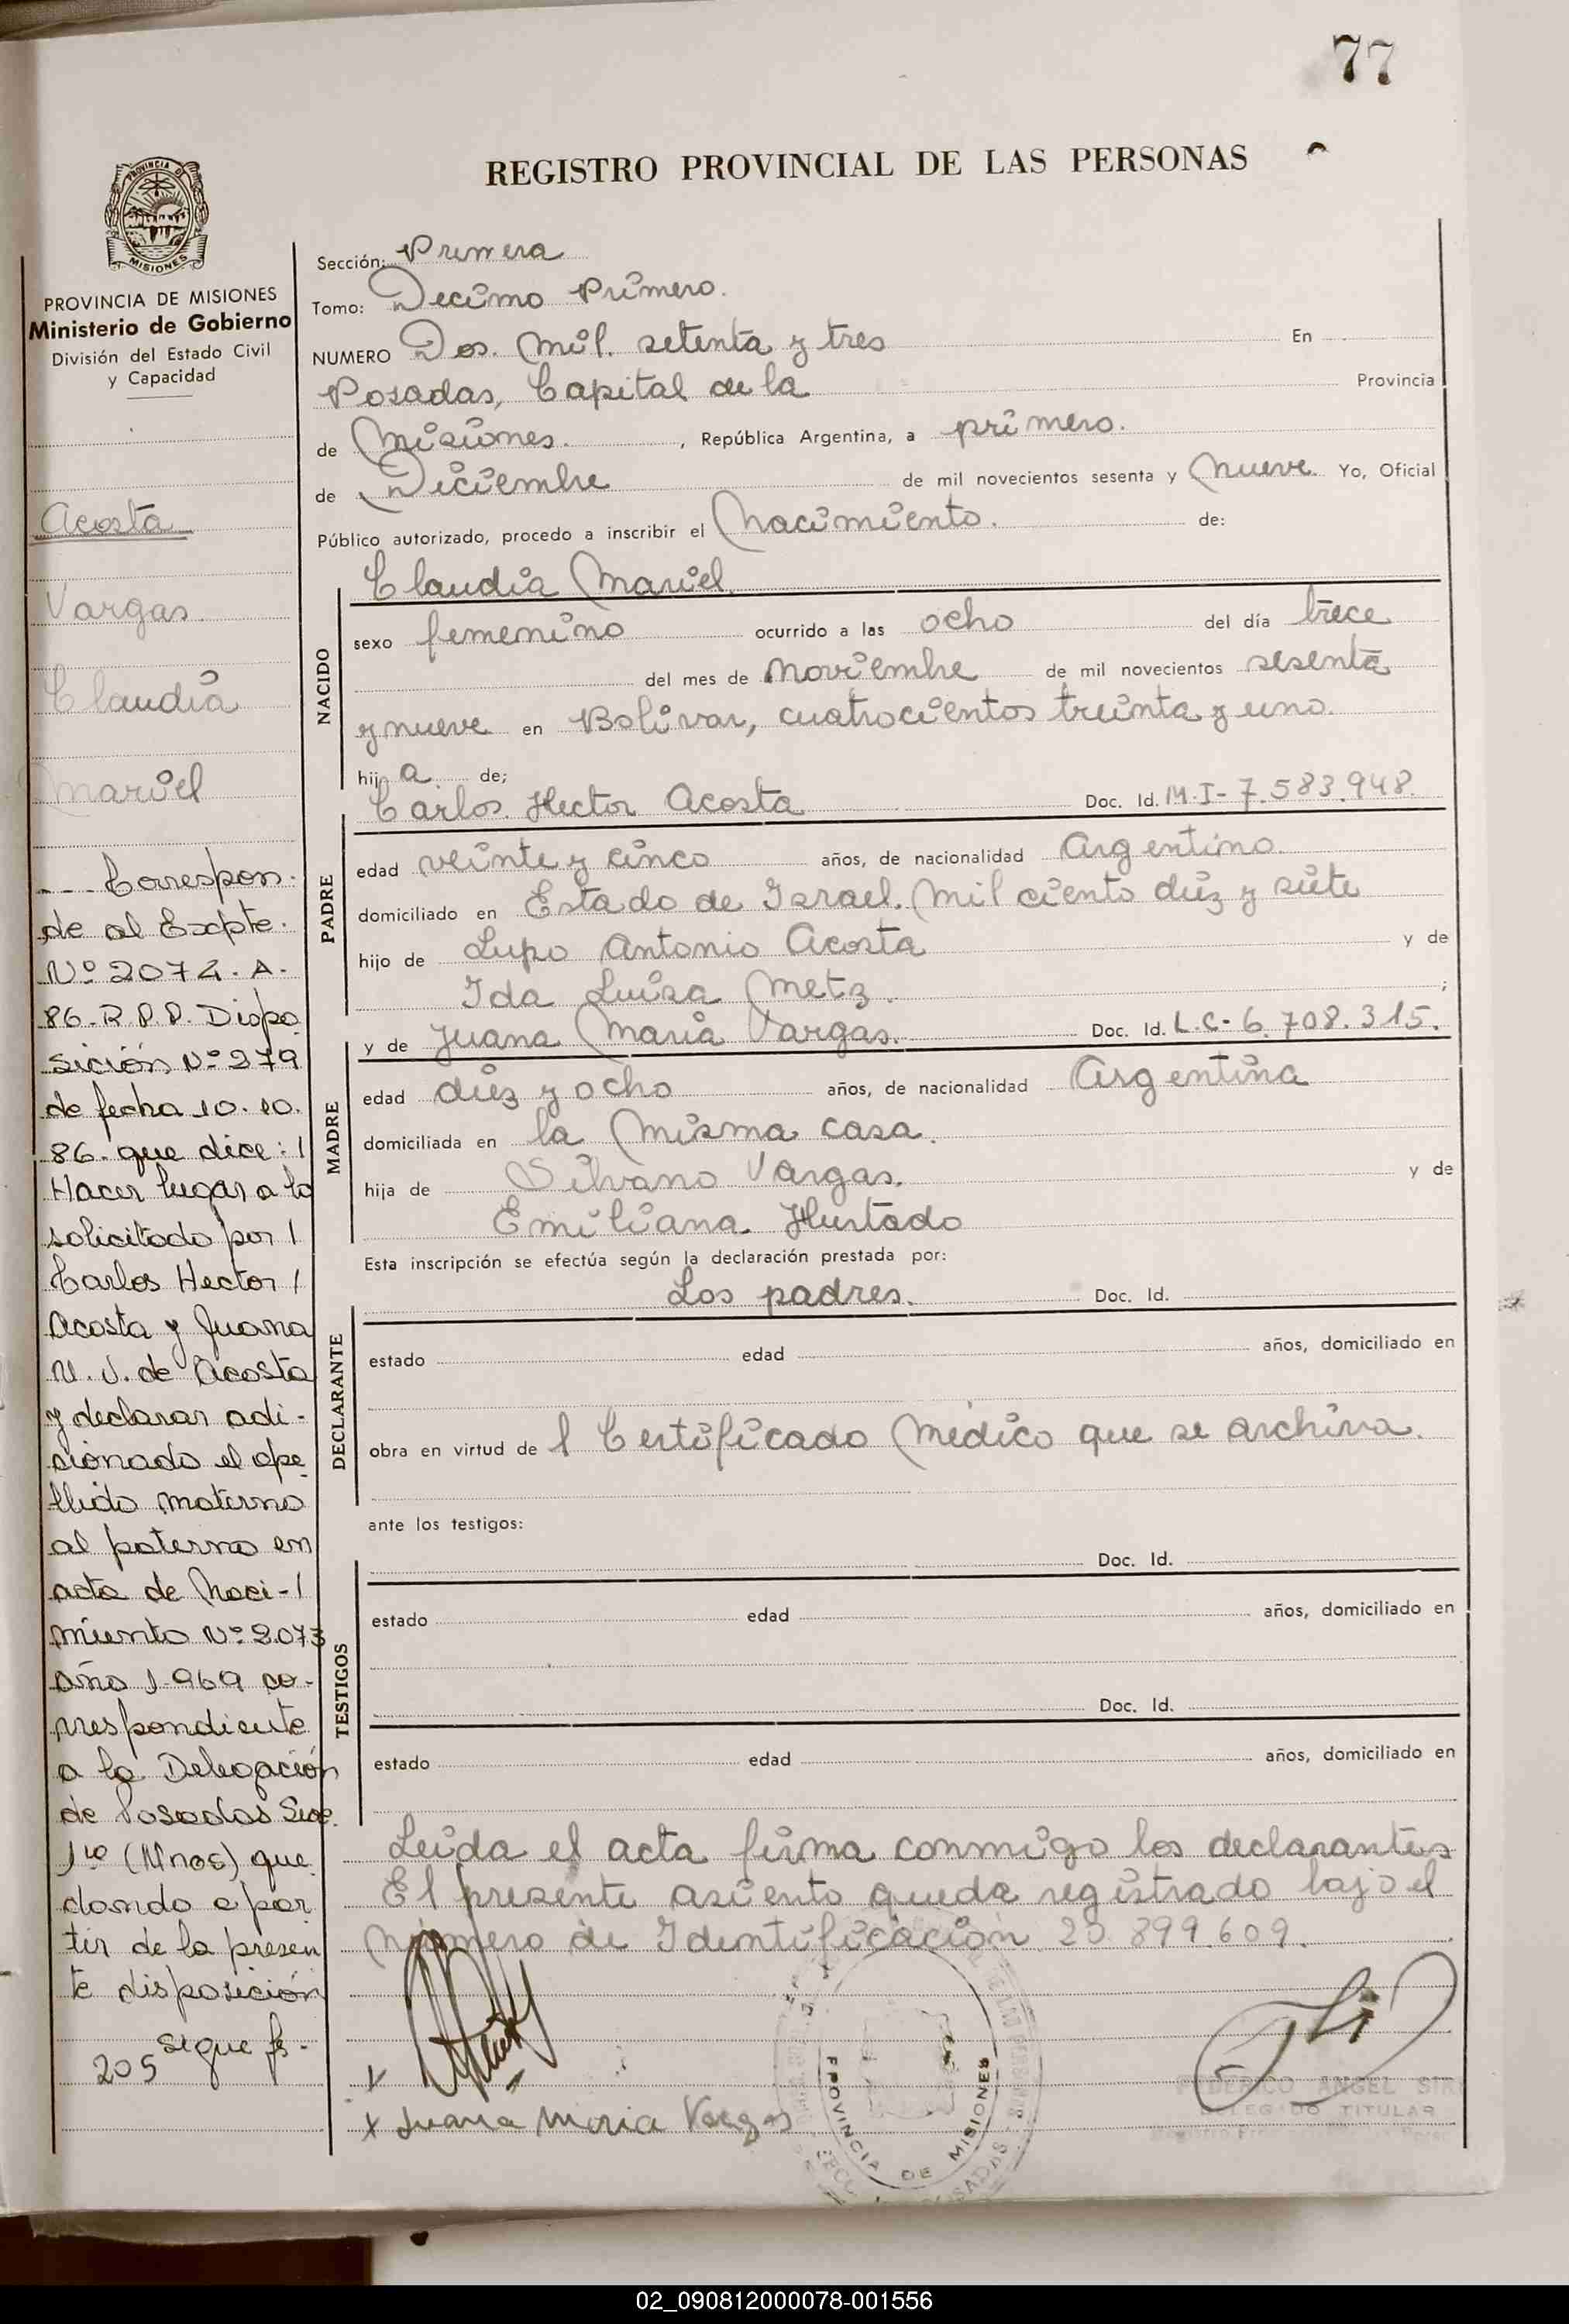 77
REGISTRO PROVINCIAL DE LAS PERSONAS
PROVINCIA DE MISIONES
PROVINCIA DE MISIONES
Ministerio de Gobierno
División del Estado Civil
y Capacidad
Acosta
Vargas
Claudia
Mariel
--- Correspon-
de al Expte.
Nº 2074. A.
86-R.P.P. Dispo
sición Nº 279
de fecha 10.10.
86. que dice: /
Hacer lugar a lo
solicitado por /
Carlos Hector /
Acosta y Juana
M. V. de Acosta
y declarar adi-
cionado el ape
llido materno
al paterno en
acta de Naci-/
miento Nº 2.073
año 1.969 co-
rrespondiente
a la Delegación
de Posadas Sec.
1ra (Mnes) que
dando a par
tir de la presen
te disposición
sigue fs.
205
Sección: Primera
Tomo: Decimo Primero.
NUMERO Dos. Mil. setenta y tres En
Posadas, Capital de la Provincia
de Misiones. , República Argentina, a primero.
de Diciembre de mil novecientos sesenta y Nueve. Yo, Oficial
Público autorizado, procedo a inscribir el Nacimiento. de:
Claudia Mariel.
NACIDO
sexo femenino ocurrido a las ocho del día trece
del mes de Noviembre de mil novecientos sesenta
y nueve en Bolivar, cuatrocientos treinta y uno.
hij a de;
Carlos Hector Acosta Doc. Id. M.I- 7.583.948.
PADRE
edad veinte y cinco años, de nacionalidad Argentino.
domiciliado en Estado de Israel. Mil ciento diez y siete
hijo de Lupo Antonio Acosta y de
Ida Luisa Metz. ;
y de Juana Maria Vargas. Doc. Id. L.C- 6.708.315.
MADRE
edad diez y ocho años, de nacionalidad Argentina
domiciliada en la misma casa.
hija de Silvano Vargas. y de
Emiliana Hurtado
Esta inscripción se efectúa según la declaración prestada por:
Los padres. Doc. Id.
DECLARANTE
estado edad años, domiciliado en
obra en virtud de l Certificado Medico que se archiva.
ante los testigos:
Doc. Id.
TESTIGOS
estado edad años, domiciliado en
Doc. Id.
estado edad años, domiciliado en
Leida el acta firma conmigo los declarantes
El presente asiento queda registrado bajo el
Número de Identificación 20.899.609.
x Juana Maria Vargas
PROVINCIA DE MISIONES
POSADAS
FEDERICO ANGEL
DELEGADO TITULAR
02_090812000078-001556